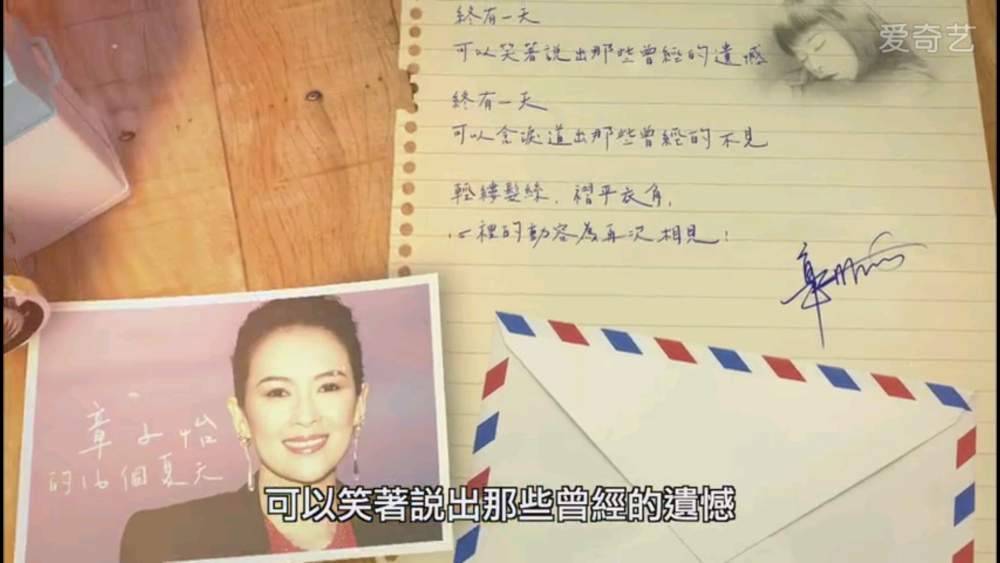 爱奇艺
終有一天
可以笑著說出那些曾經的遺憾
終有一天
可以含淚道出那些曾經的不見
輕縷髮絲，褶平衣角，
心裡的動容為再次相見！
章子怡
的16個夏天
可以笑著說出那些曾經的遺憾